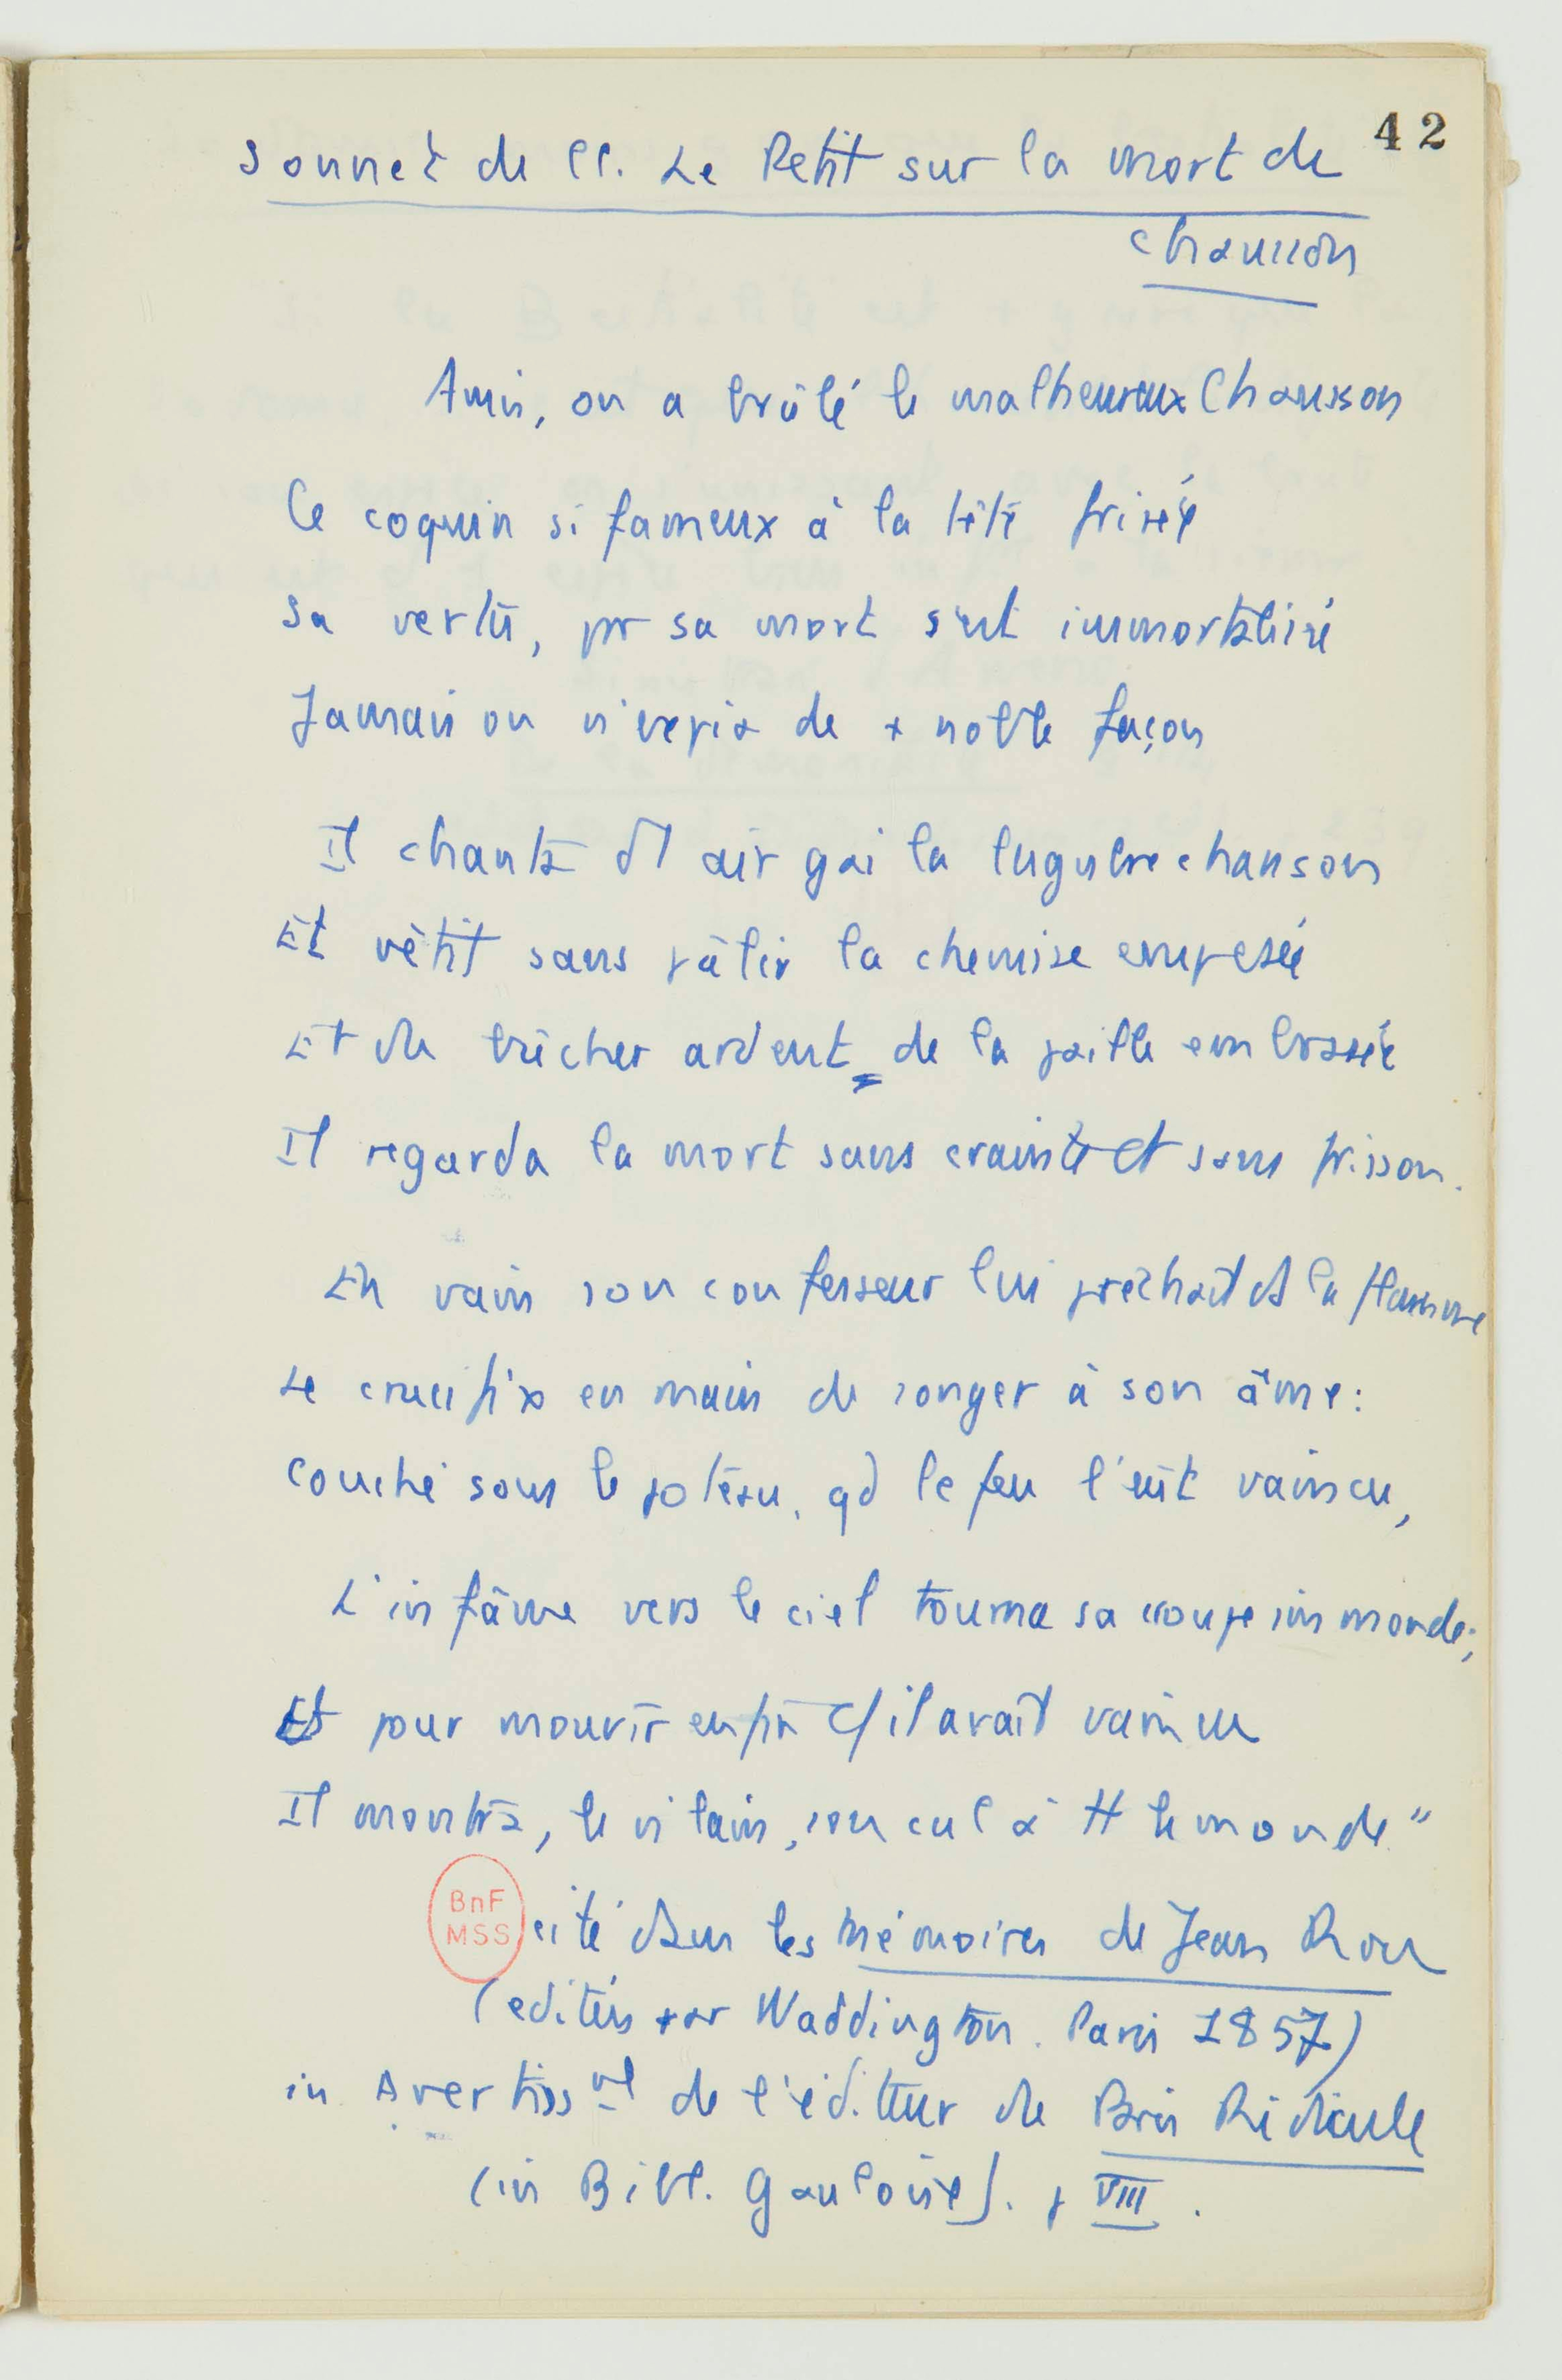 42
Sonnet de Cl. Le Petit sur la mort de
Chausson
Amis, on a brûlé le malheureux Chausson
Ce coquin si fameux à la tête frisée
Sa vertu, pr sa mort s'est immortalisé
Jamais on n'expira de + noble façon
Il chanta d'1 air gai la lugubre chanson
Et vêtit sans pâlir la chemise empesée
Et du bûcher ardent de la paille embrasée
Il regarda la mort sans crainte et sans frisson.
En vain son confesseur lui prêchait ds la flamme
Le crucifix en main de songer à son âme :
Couché sous le poteau, qd le feu l'eût vaincu,
L'infâme vers le ciel tourna sa croupe immonde;
Et pour mourir enfin c/ il avait vaincu
Il montra, le vilain, son cul à tt le monde"
BnF
MSS
cité dans les Mémoires de Jean Rou
(edités par Waddington. Paris 1857)
in Avertissmt de l'éditeur de Paris Ridicule
(in Bibl. Gauloise). p VIII.